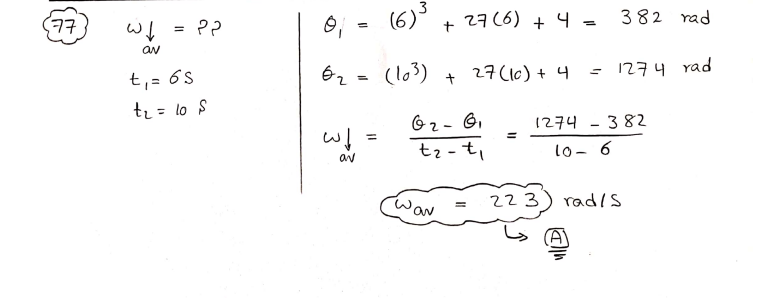 77
ω↓av = ??
t₁ = 6S
t₂ = 10 S
θ₁ = (6)³ + 27(6) + 4 = 382 rad
θ₂ = (10³) + 27(10) + 4 = 1274 rad
ω↓av = θ₂ - θ₁ / t₂ - t₁ = 1274 - 382 / 10 - 6
ωav = 223 rad/S
↳ A